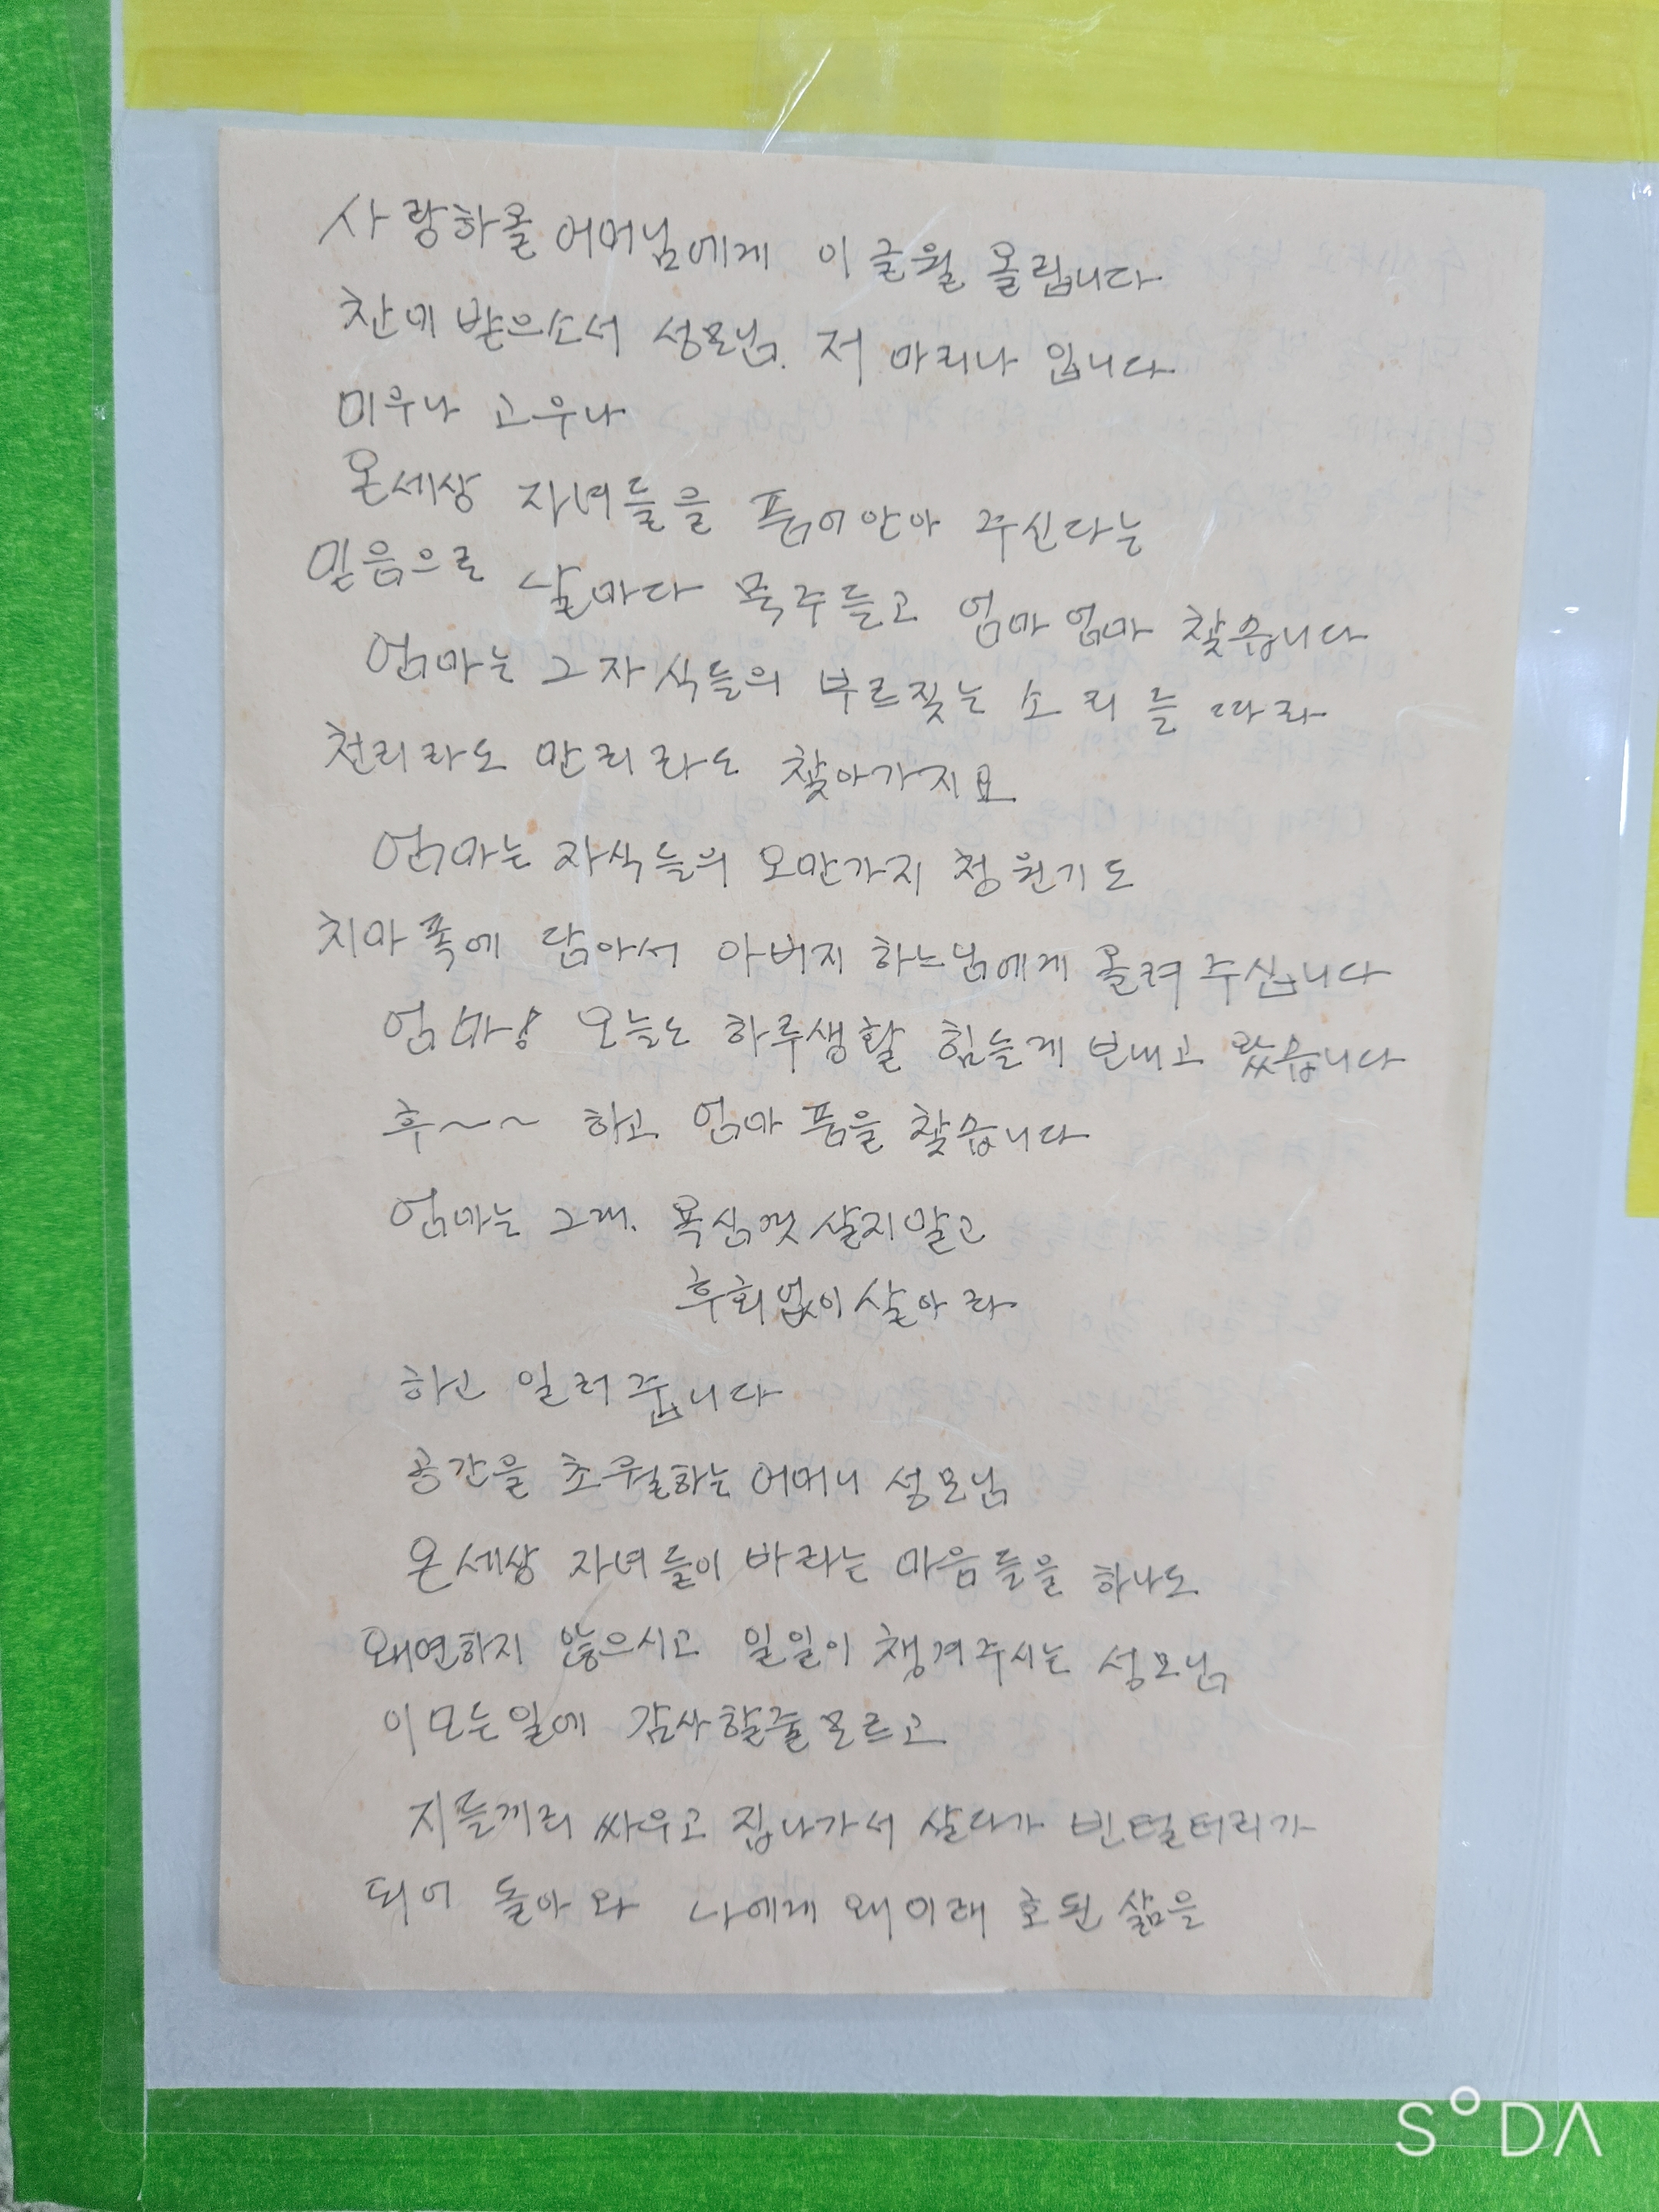 사랑하올 어머님에게 이 글월 올립니다
찬미 받으소서 성모님. 저 마리나 입니다
미우나 고우나
온세상 자녀들을 품어안아 주신다는
믿음으로 날마다 묵주들고 엄마 엄마 찾습니다
엄마는 그 자식들의 부르짖는 소리를 따라
천리라도 만리라도 찾아가지요
엄마는 자식들의 오만가지 청원기도
치마폭에 담아서 아버지 하느님에게 올려 주십니다
엄마! 오늘도 하루생활 힘들게 보내고 왔습니다
후~~ 하고 엄마 품을 찾습니다
엄마는 그래. 욕심껏 살지말고
후회없이 살아라
하고 일러 줍니다
공간을 초월하는 어머니 성모님
온세상 자녀들이 바라는 마음들을 하나도
왜면하지 않으시고 일일이 챙겨주시는 성모님
이 모든일에 감사할줄 모르고
지들끼리 싸우고 집나가서 살다가 빈털터리가
되어 돌아 와 나에게 왜 이래 호된 삶을
SODA